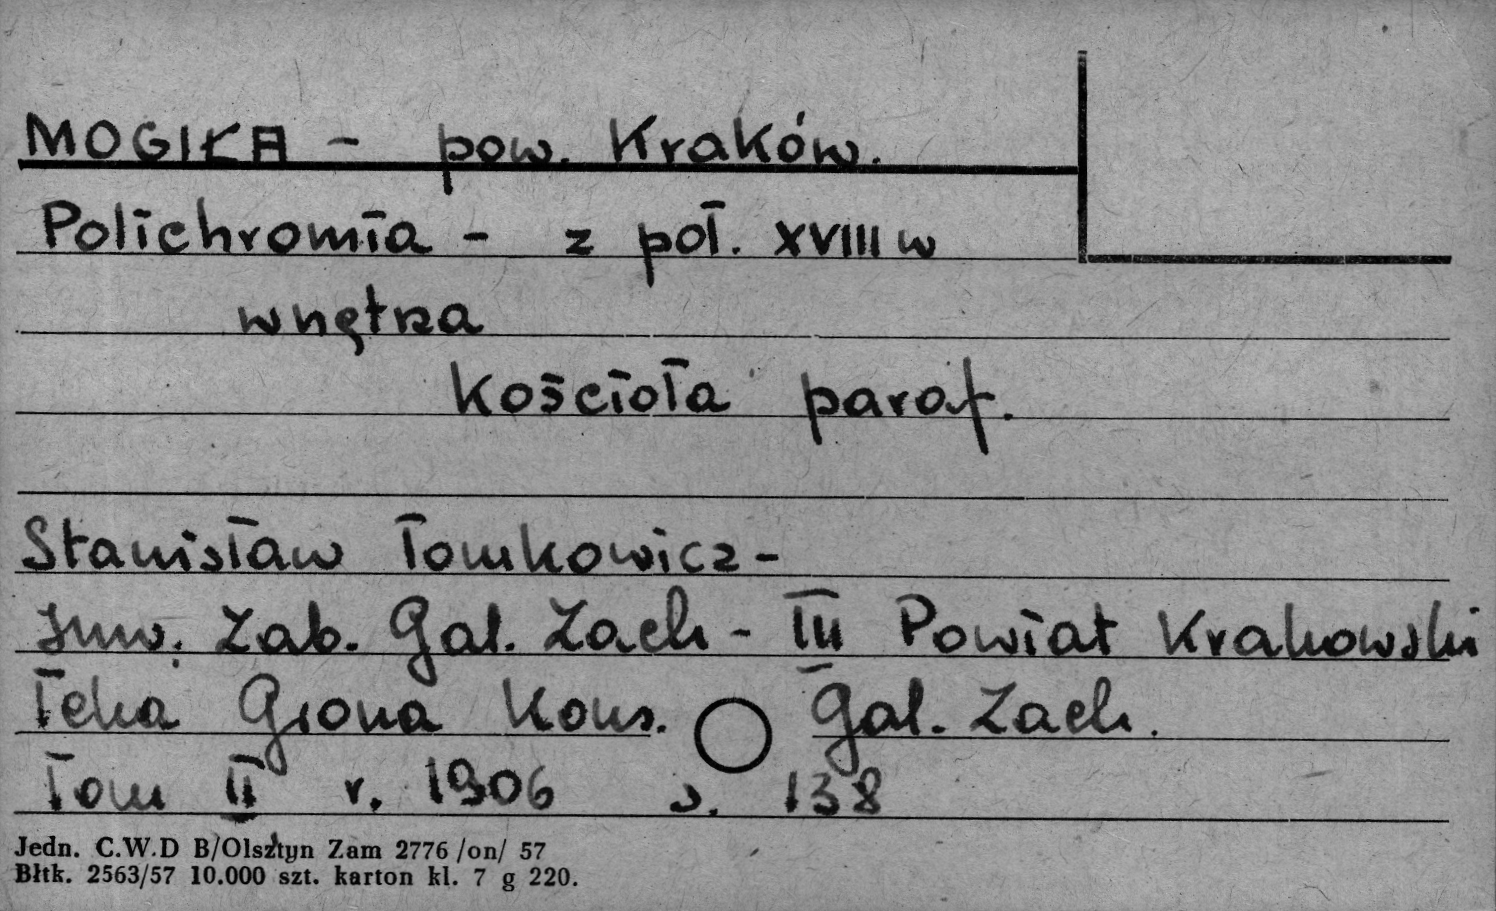 MOGIŁA - pow. Kraków.
Polichromia - z poł. XVIII w
wnętrza
Kościoła paraf.
Stanisław Tomkowicz -
Inw. Zab. Gal. Zach - III Powiat Krakowski
Teka Grona Kons. Gal. Zach.
Tom II r. 1906 s. 138
Jedn. C.W.D B/Olsztyn Zam 2776 /on/ 57
Błtk. 2563/57 10.000 szt. karton kl. 7 g 220.